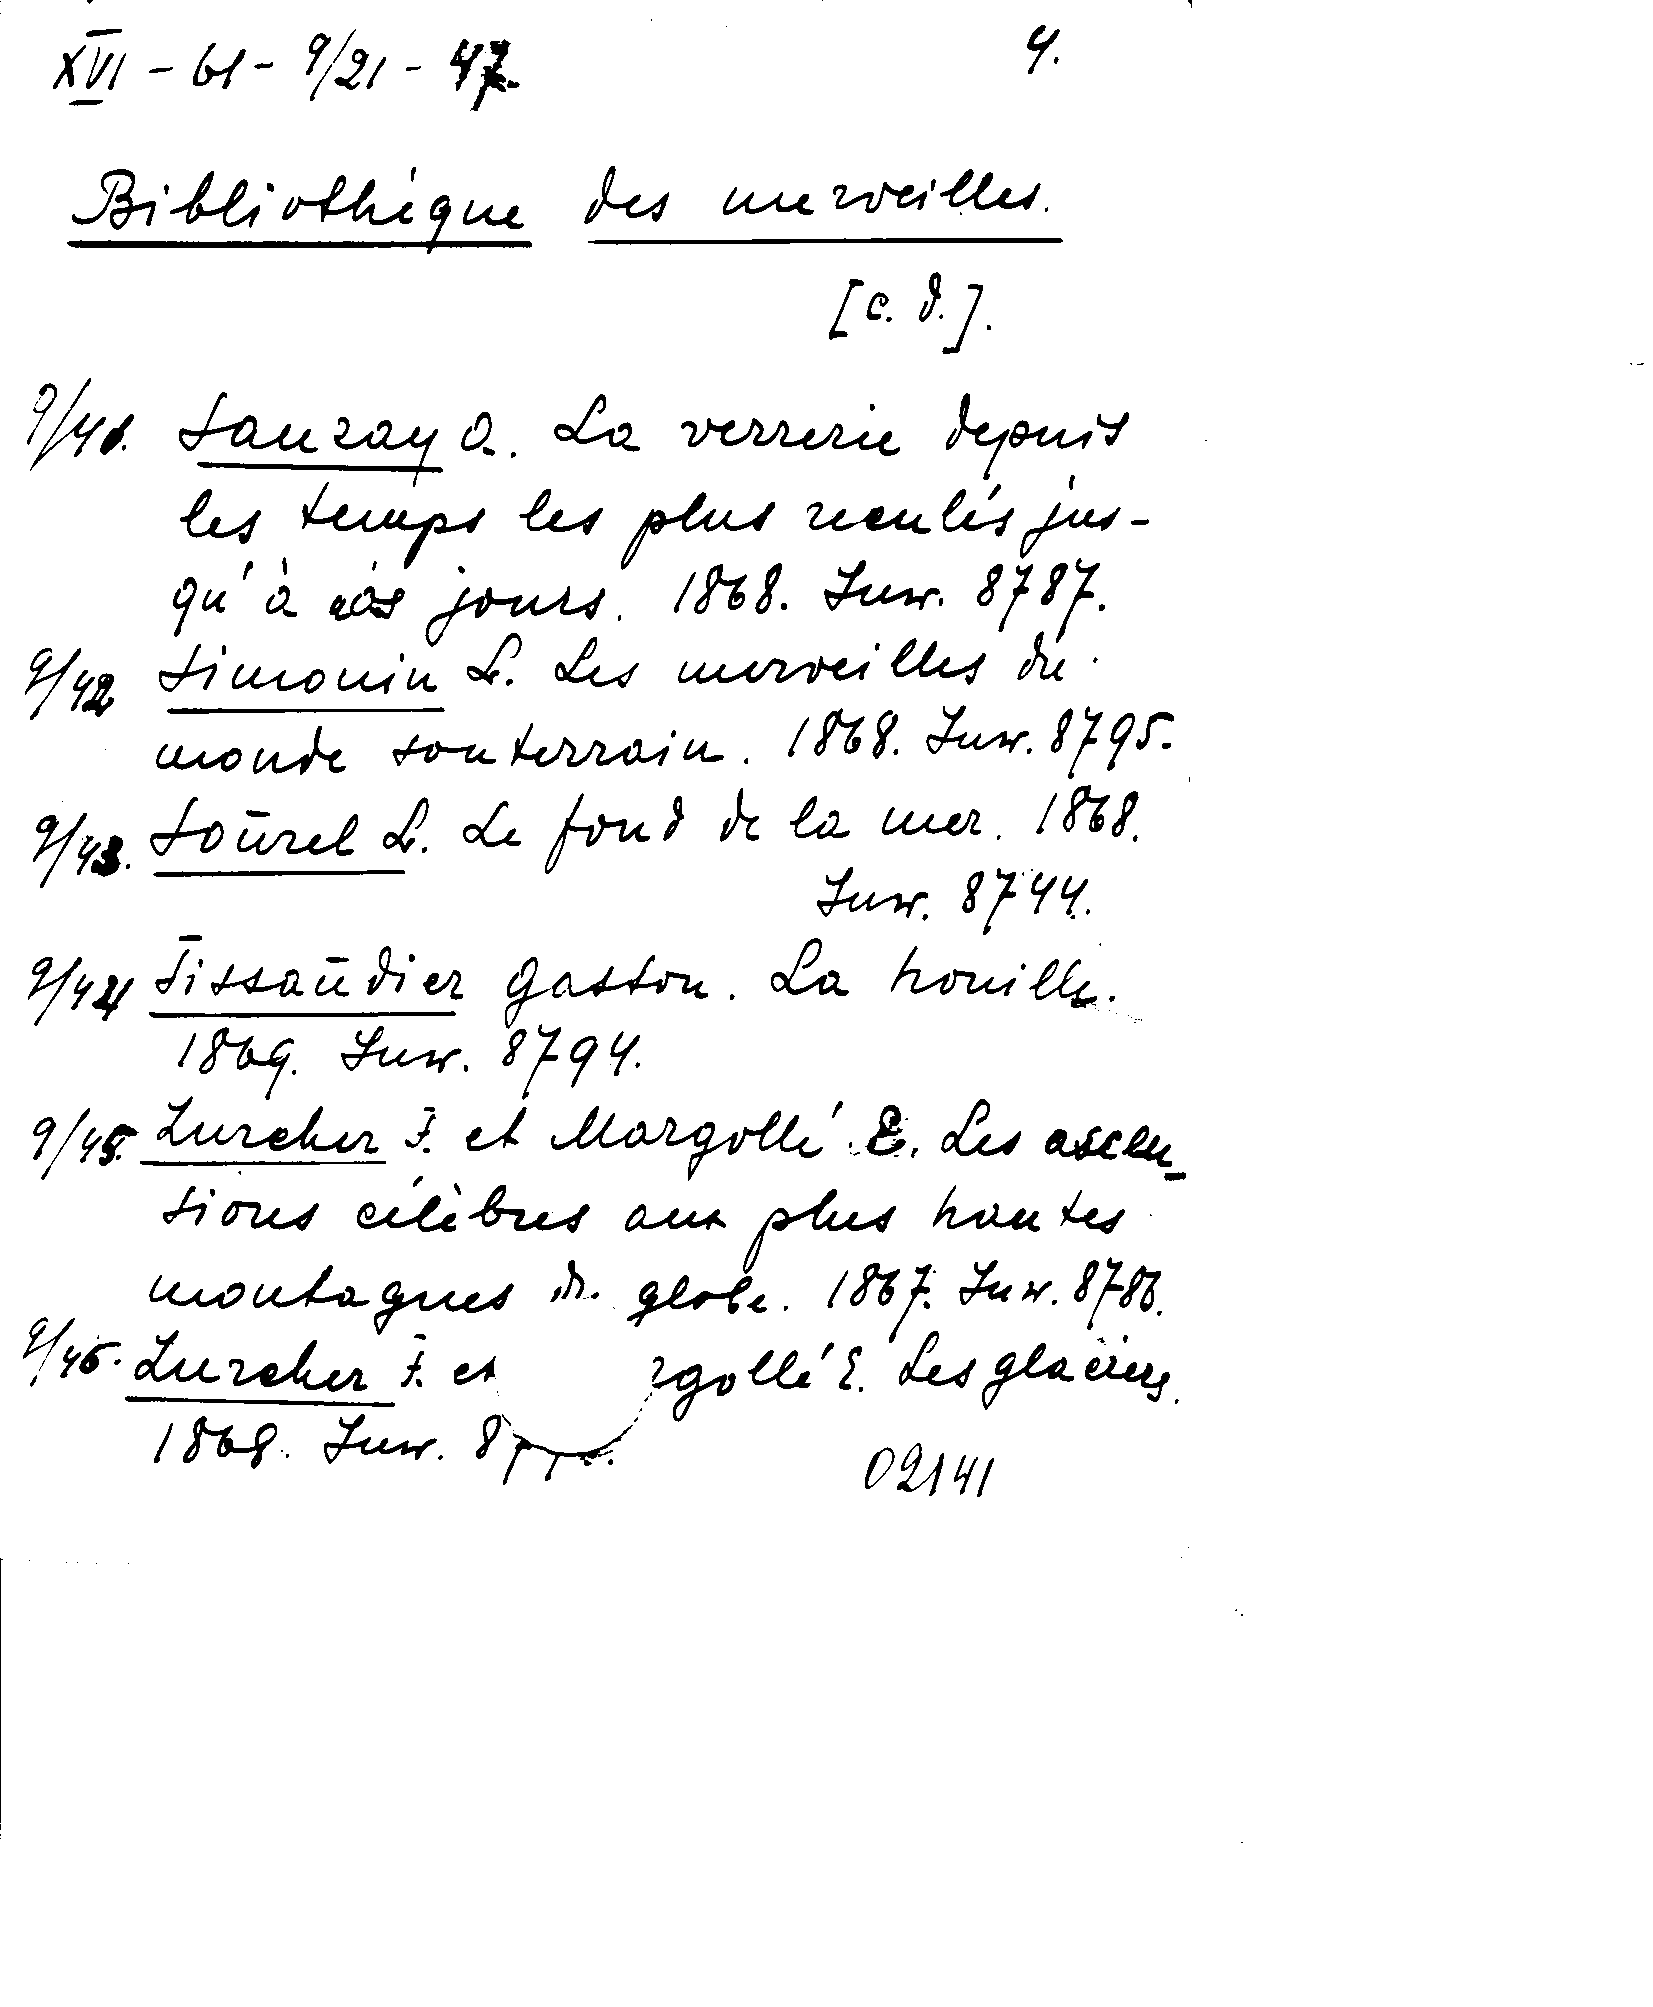 XVI - 61 - 9/21 - 47.
4.
Bibliothèque des merveilles.
[c. d.].
9/41. Sauzay A. La verrerie depuis
les temps les plus reculés jus-
qu'à nos jours. 1868. Inw. 8787.
9/42 Simonin L. Les merveilles du
monde souterrain. 1868. Inw. 8795.
9/43. Soūrel L. Le fond de la mer. 1868.
Inw. 8744.
9/44 Tissaūdier Gaston. La houille.
1869. Inw. 8794.
9/45. Zurcher F. et Margollé E. Les ascen-
sions célèbres aux plus hautes
montagnes du globe. 1867. Inw. 8786.
9/46. Zurcher F. et rgollé E. Les glaciers.
1868. Inw.
02141